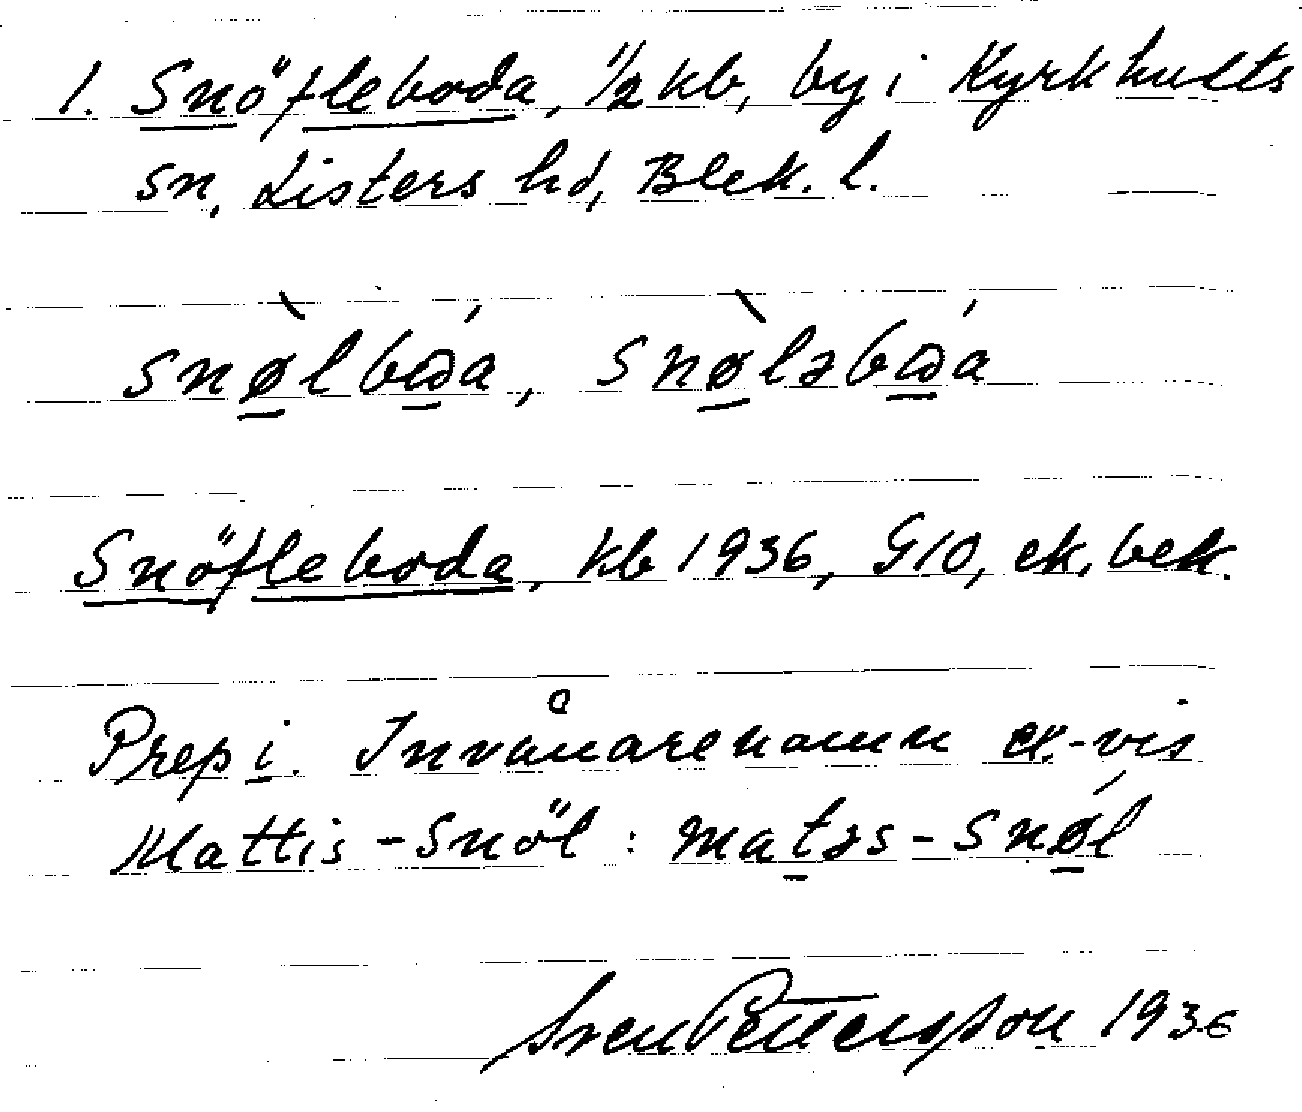 1. Snöfleboda, 1/2 kb, by i Kyrkhults
sn, Listers hd, Blek. l.
snø̲lbω̲a, snø̲ləbω̲a
Snöfleboda, kb 1936, G10, ek, bek.
Prep i. Invånarenamn ex.-vis
Mattis-Snöl : mat̲əs-snø̲l
Sven Pettersson 1936